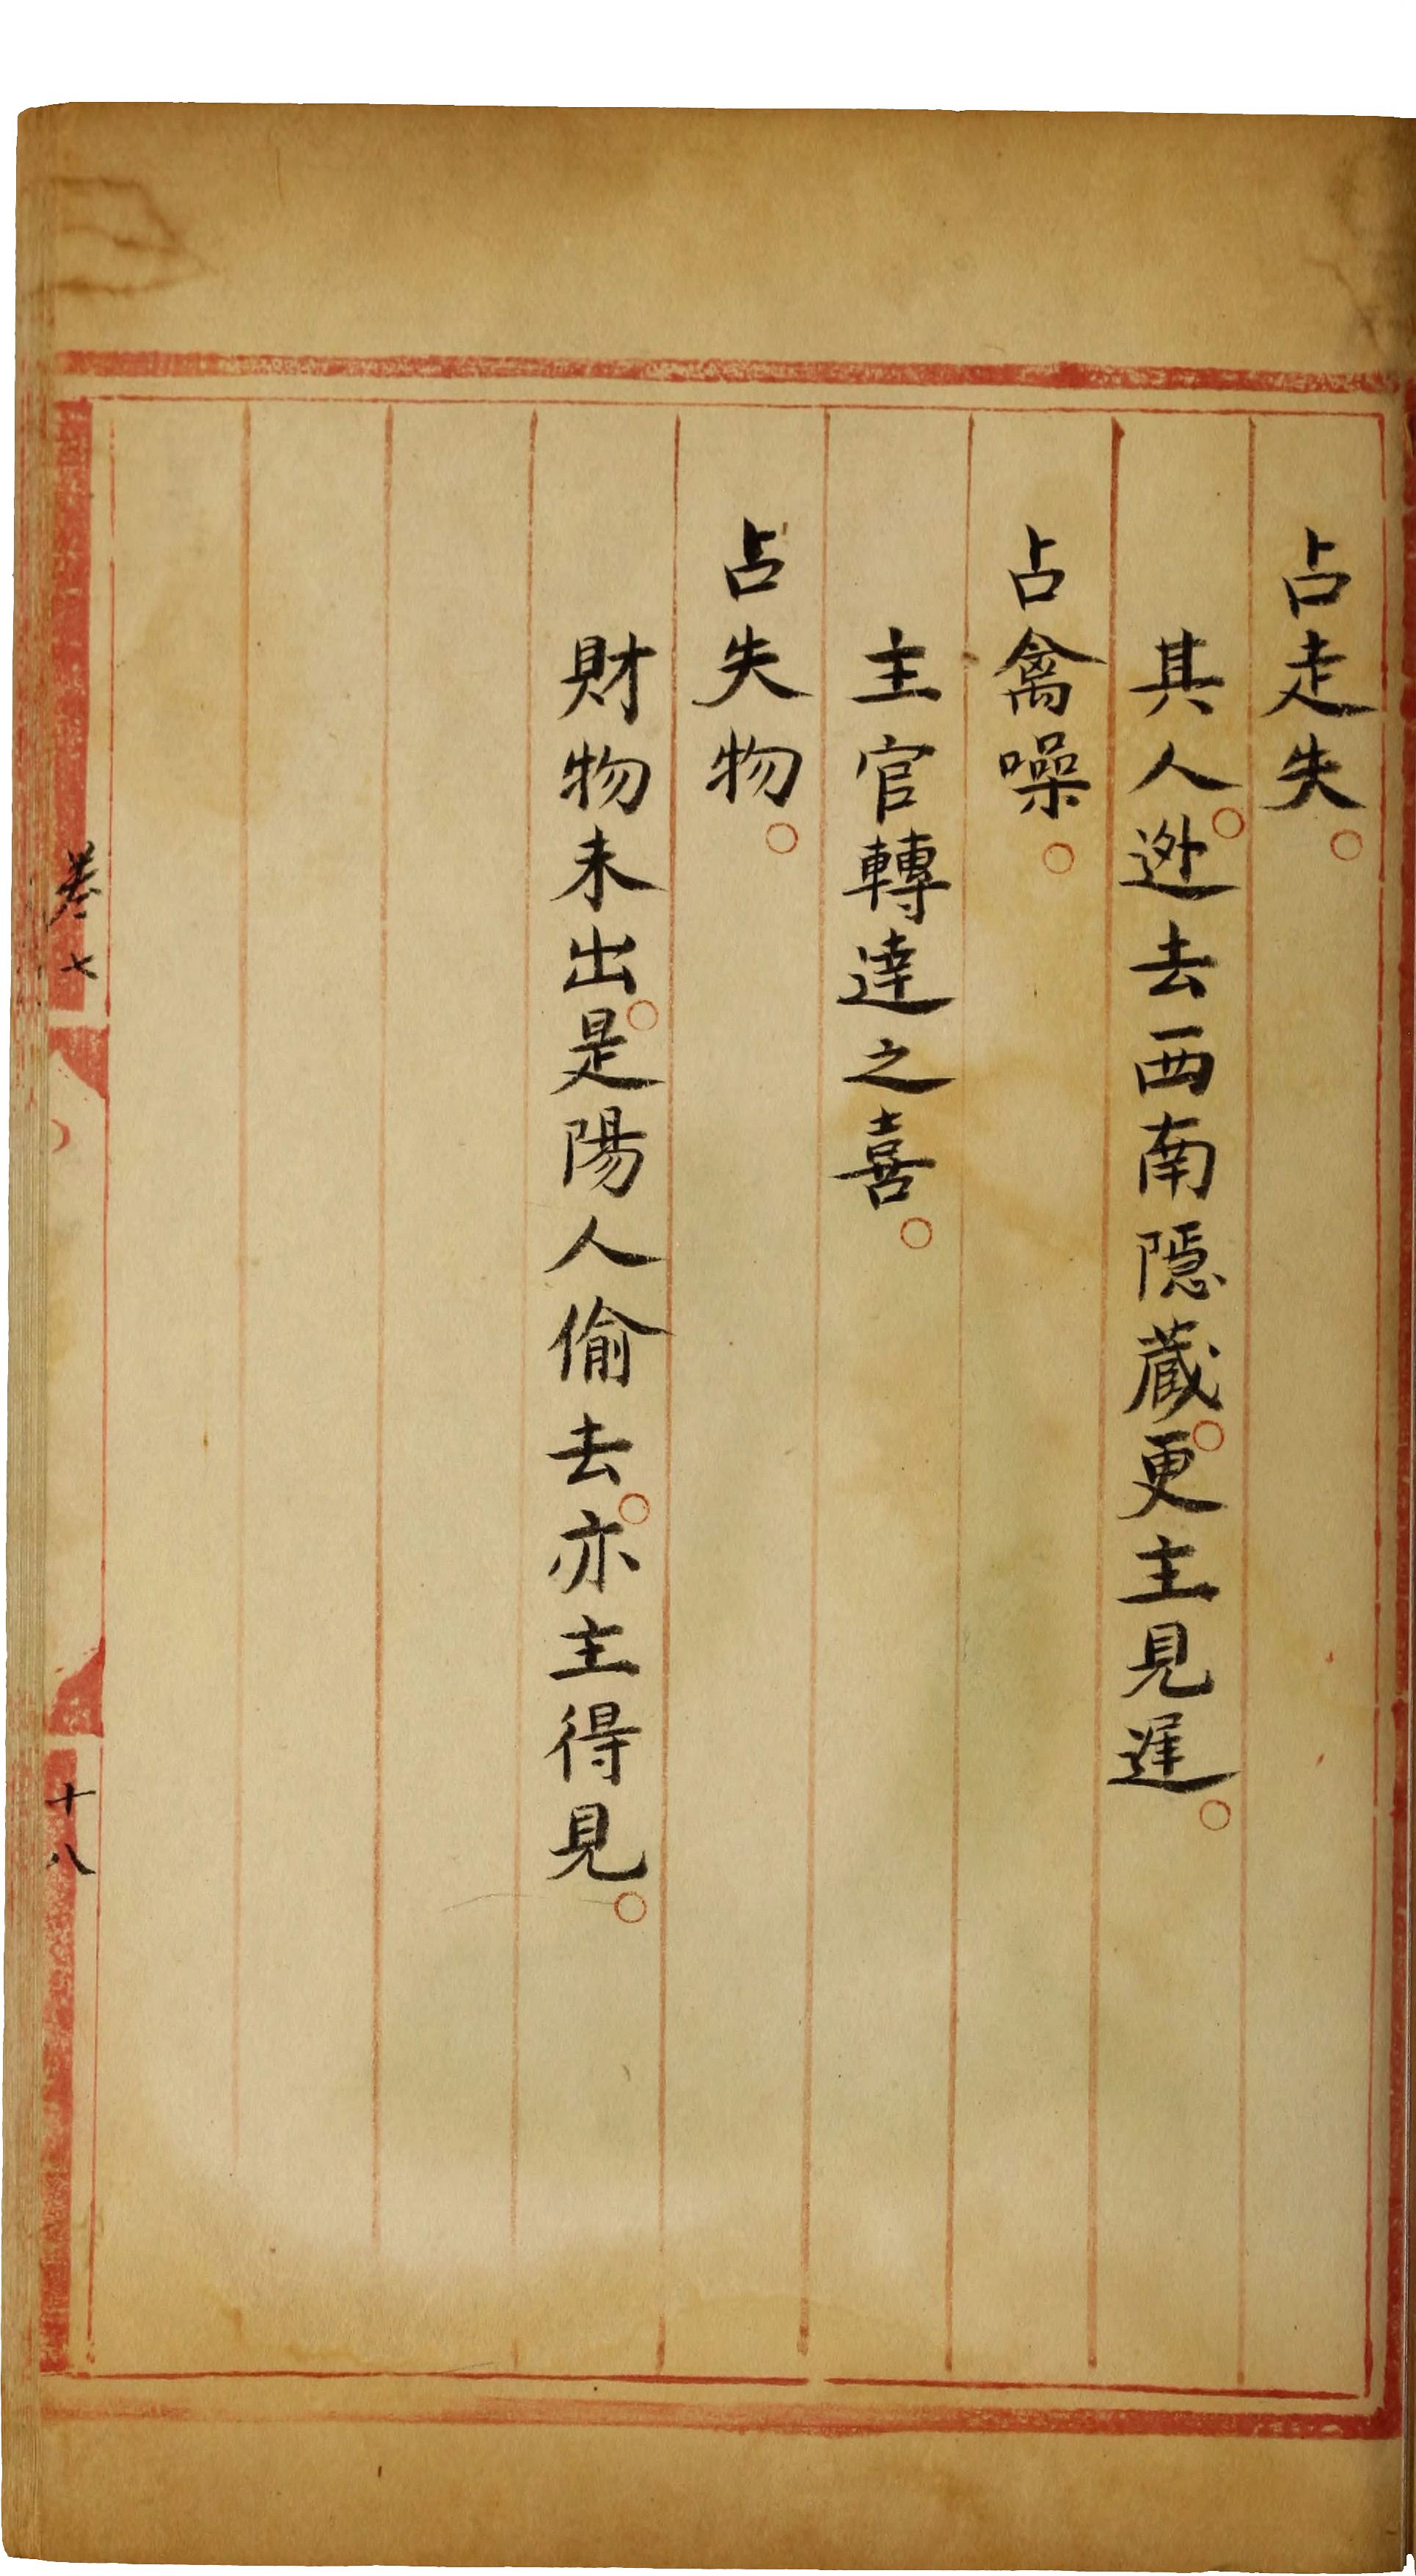 占走失。
其人。迯去西南隱藏。更主見遅。
占禽噪。
主官轉達之喜。
占失物。
財物未出。是陽人偷去。亦主得見。
卷七
十八